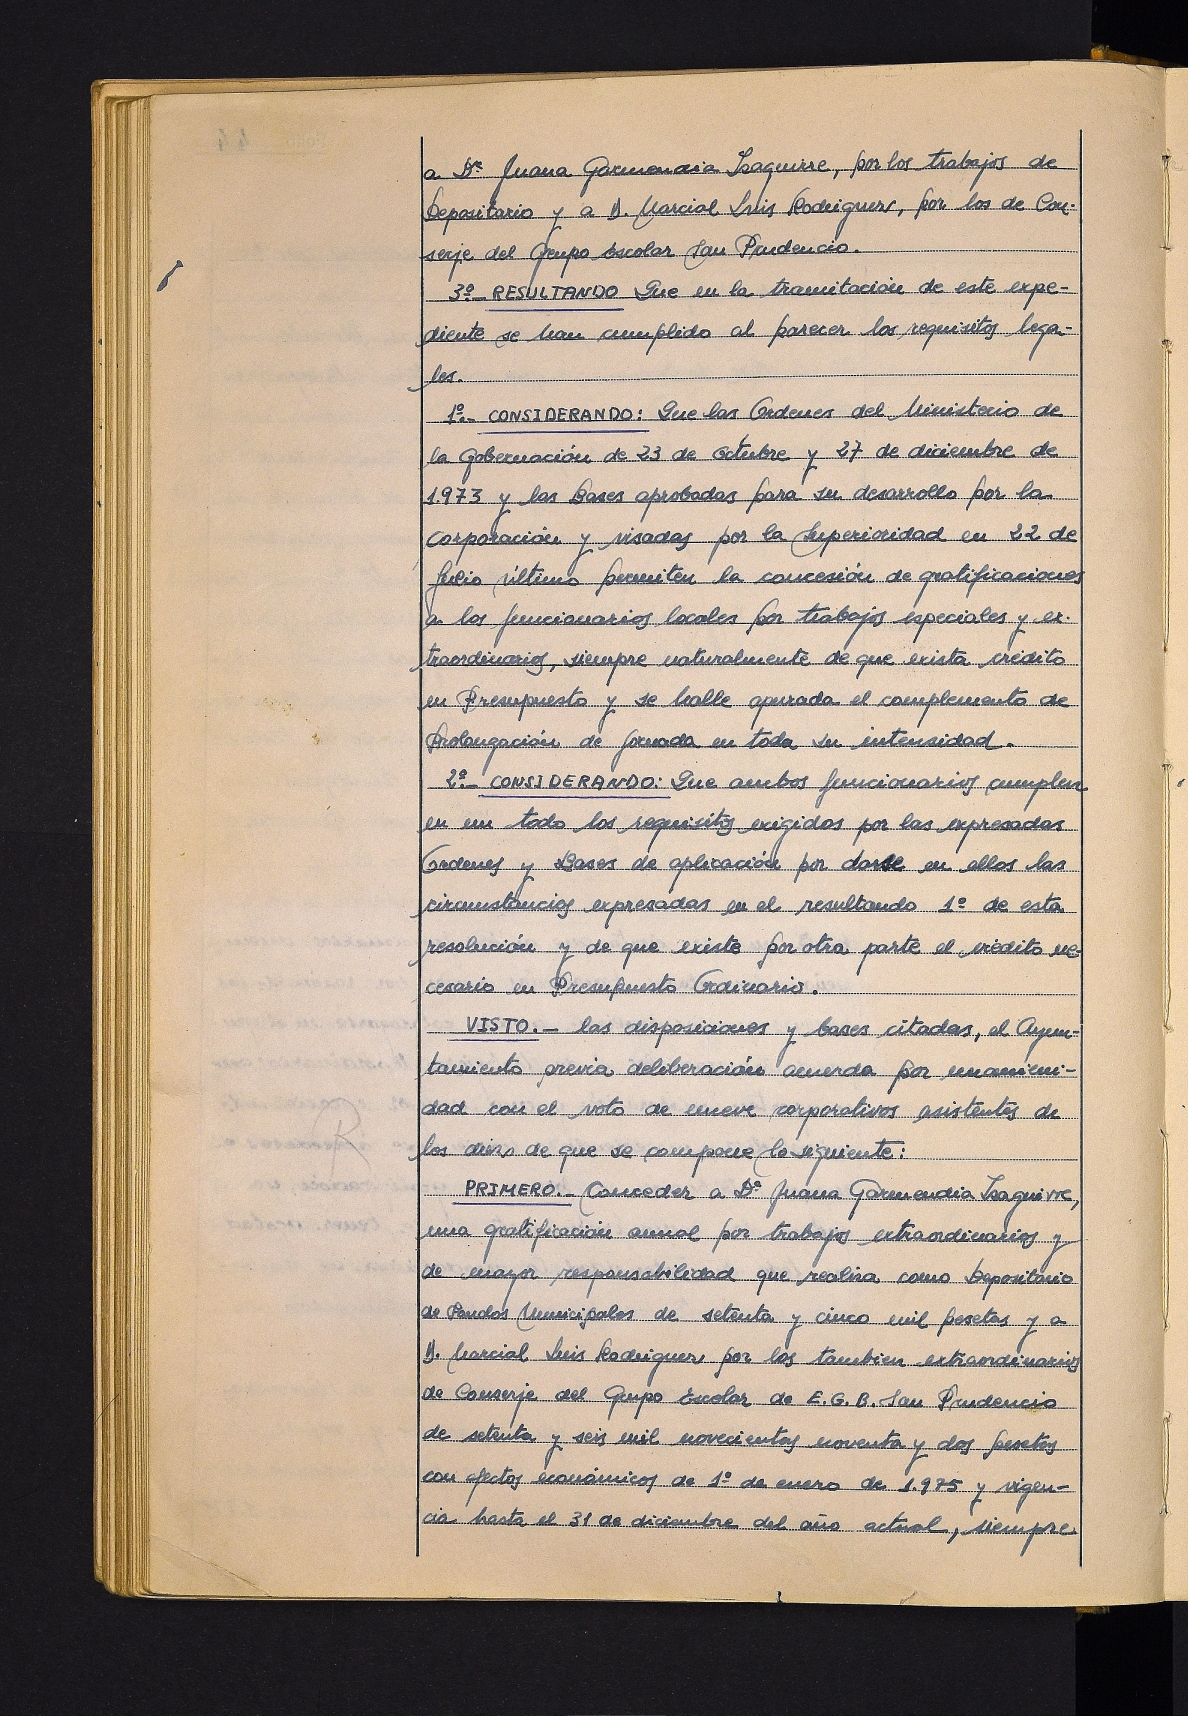 a Dª Juana Garmendia Isaguirre, por los trabajos de
Depositario y a D. Marcial Luis Rodriguez, por los de Con-
serje del Grupo Escolar San Prudencio.
3º.- RESULTANDO Que en la tramitación de este expe-
diente se han cumplido al parecer los requisitos lega-
les.
1º.- CONSIDERANDO: Que las Ordenes del Ministerio de
la Gobernación de 23 de octubre y 27 de diciembre de
1.973 y las Bases aprobadas para su desarrollo por la
Corporación y visadas por la Superioridad en 22 de
Julio último permiten la concesión de gratificaciones
a los funcionarios locales por trabajos especiales y ex-
traordinarios, siempre naturalmente de que exista crédito
en Presupuesto y se halle apurada el complemento de
Prolongación de Jornada en toda su intensidad.
2º.- CONSIDERANDO: Que ambos funcionarios cumplen
en un todo los requisitos exigidos por las expresadas
Ordenes y Bases de aplicación por darse en ellos las
circunstancias expresadas en el resultando 1º de esta
resolución y de que existe por otra parte el crédito ne-
cesario en Presupuesto Ordinario.
VISTO.- las disposiciones y bases citadas, el Ayun-
tamiento previa deliberación acuerda por unanimi-
dad con el voto de nueve corporativos asistentes de
los diez de que se compone lo siguiente:
PRIMERO.- Conceder a Dª Juana Garmendia Isaguirre,
una gratificación anual por trabajos extraordinarios y
de mayor responsabilidad que realiza como Depositario
de Fondos Municipales de setenta y cinco mil pesetas y a
D. Marcial Luis Rodriguez por los tambien extraordinarios
de Conserje del Grupo Escolar de E.G.B. San Prudencio
de setenta y seis mil novecientas noventa y dos pesetas
con efectos económicos de 1º de enero de 1.975 y vigen-
cia hasta el 31 de diciembre del año actual, siempre